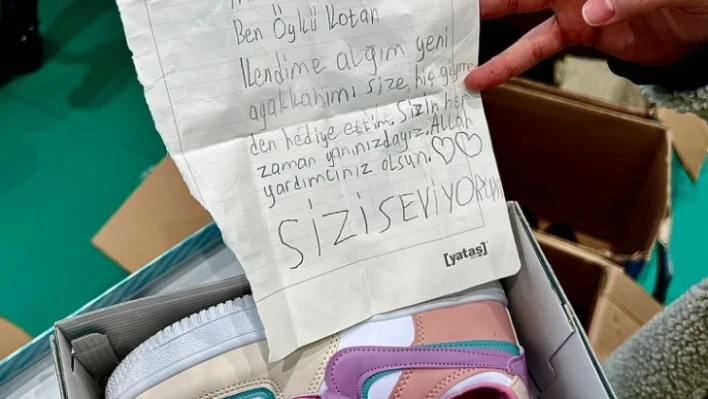 Ben Öykü Kotan
Kendime aldığım yeni
ayakkabımı size hiç giyme
den hediye ettim. Sizin her
zaman yanınızdayız. Allah
yardımcınız olsun.
SİZİ SEVİYORUM
[yataş]